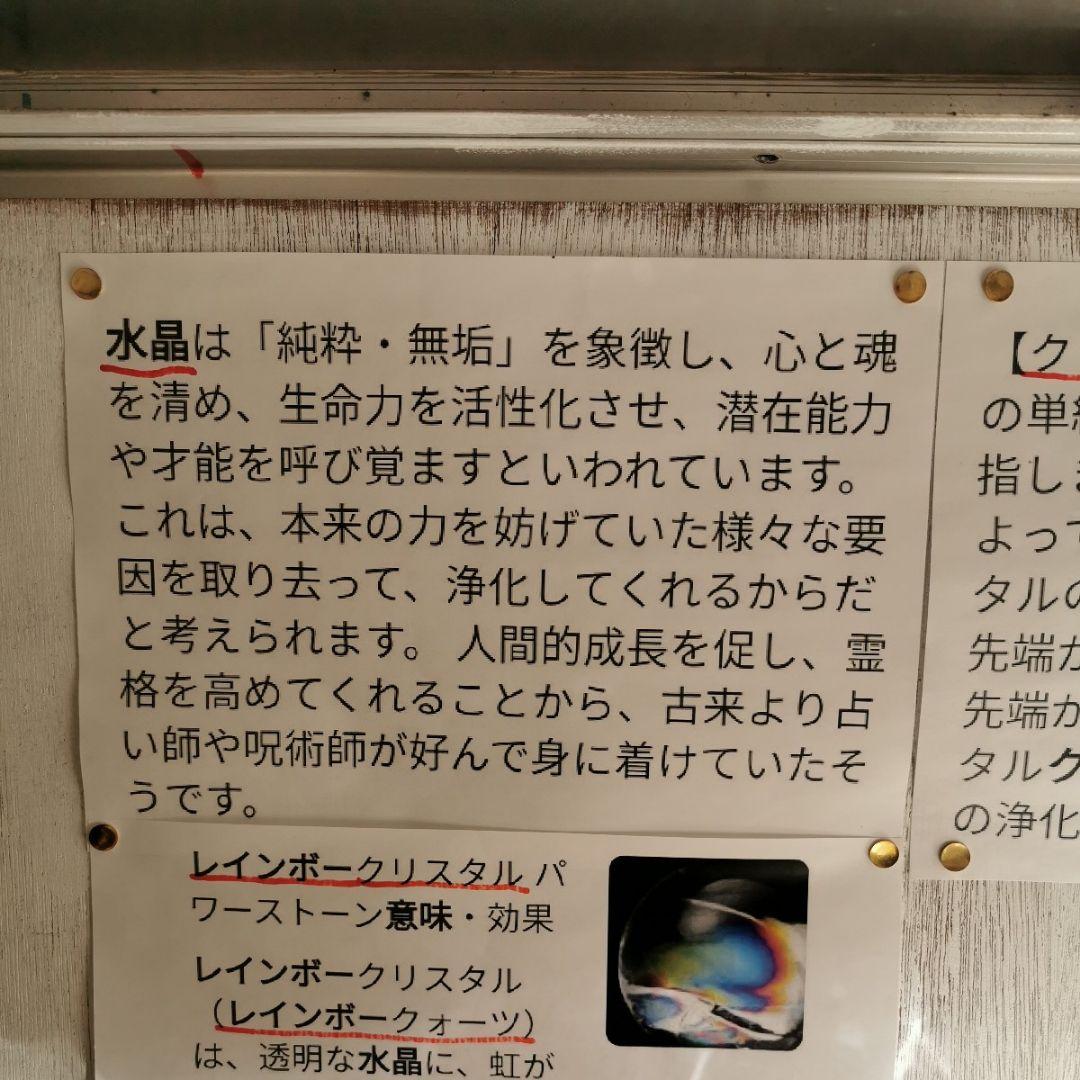 水晶は「純粋・無垢」を象徴し、心と魂
を清め、生命力を活性化させ、潜在能力
や才能を呼び覚ますといわれています。
これは、本来の力を妨げていた様々な要
因を取り去って、浄化してくれるからだ
と考えられます。 人間的成長を促し、霊
格を高めてくれることから、古来より占
い師や呪術師が好んで身に着けていたそ
うです。
レインボークリスタル パ
ワーストーン意味・効果
レインボークリスタル
（レインボークォーツ）
は、透明な水晶に、虹が
【ク
の単
指し
よって
タルの
先端が
先端が
タルク
の浄化